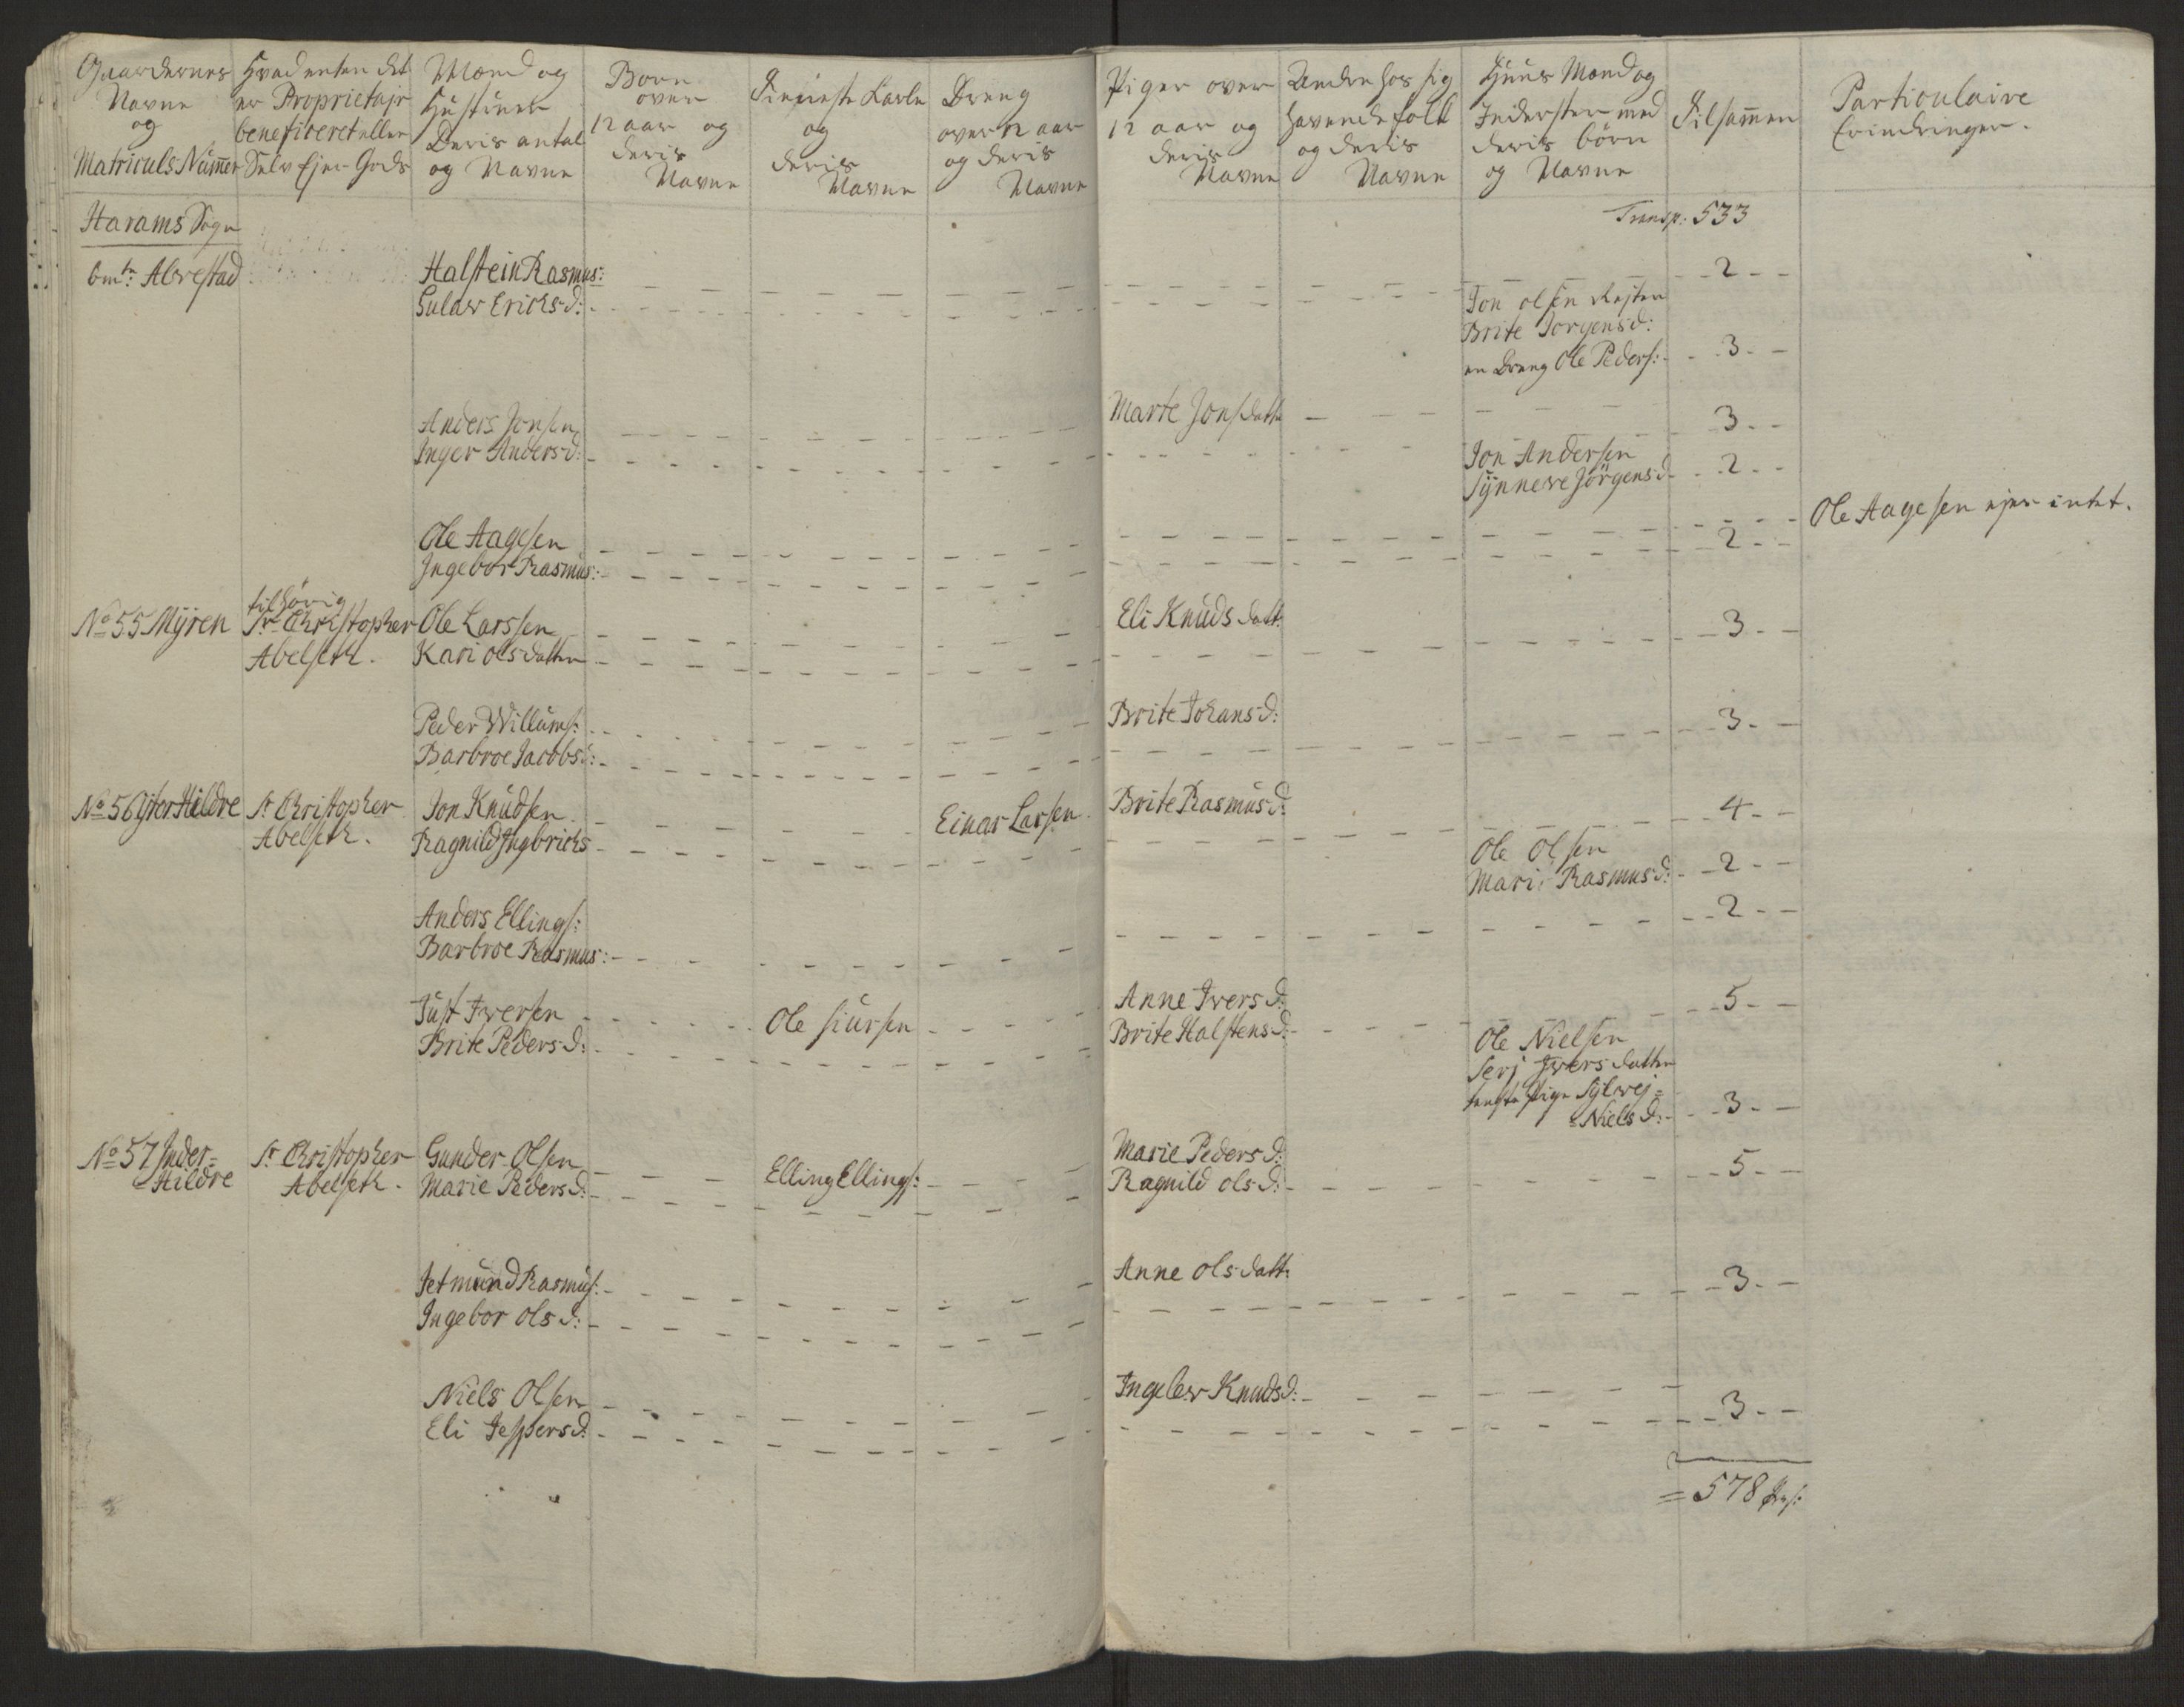 Gaardernes
Navne
og
Matriculs Num̄er
Hvad enten det
er Proprietair
beneficeret eller
Selv Ejer Gods
Mænd og
Hustruer
Deris antal
og Navne
Børn
over
12 aar og
deris
Navne
Tieniste Karle
og
deris
Navne
Dreng
over 12 aar
og deris
Navne
Piger over
12 aar og
deris
Navne
Andre hos sig
havende folk
og deris
Navne
Huus Mænd og
Inderster med
deris børn
og Navne
Tilsam̄en
Particulaire
Erindringer.
Harams Sogn
Transp: 533
Alvestad
Halstein Rasmus:
Gulav Erichs d:
2
Jon olsen
Brite Jorgens d:
en Dreng Ole Peders:
3
Anders Jonsen
Inger Anders d:
Marte Jons datt
3
Jon Andersen
Synneve Jörgens d
2
Ole Aagesen
Ingebor Rasmus:
2
Ole Aagesen ejer intet.
No 55 Myren
tilhörig
Sr Christopher
Abelseth.
Ole Larssen
Kari ols datter
Eli Knuds datt:
3
Peder Willums:
Barbroe Jacobs d:
Brite Johans d:
3
No 56 Yter Hildre
Sr Christopher
Abelseth.
Jon Knudsen
Ragnild Ingbrichs
Einar Larsen
Brite Rasmus d:
4
Ole Olsen
Mari Rasmus d:
2
Anders Ellings:
Barbroe Rasmus:
2
Just Iversen
Brite Peders d:
Ole Siursen
Anne Ivers d:
Brite Halstens d:
5
Ole Nielsen
Serj Ivers datter
Pige Sylvej=
=Niels d:
3
No 57 Inder=
=Hildre
Sr Christopher
Abelseth.
Gunder Olsen
Marie Peders d:
Elling Ellings:
Marie Peders d:
Ragnild ols d:
5
Jetmund Rasmus:
Ingebor ols d:
Anne ols datt:
3
Niels Olsen
Eli Jespers d:
Ingelev Knuds d:
3
= 578